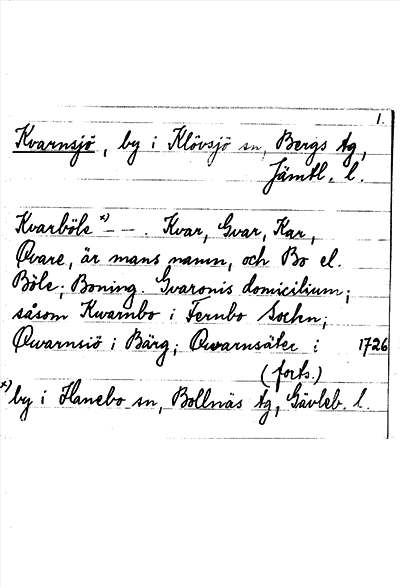 1.
Kvarnsjö, by i Klövsjö sn, Bergs tg,
Jämtl. l.
Kvarböle *) – – . Kvar, Gvar, Kar,
Qvare, är mans namn, och Bo el.
Böle; Boning. Gvaronis domicilium;
såsom Kwarnbo i Fernbo Sochn;
Qwarnsiö i Bärg; Qwarnsäter i 1726
(forts.)
*) by i Hanebo sn, Bollnäs tg, Gävleb. l.